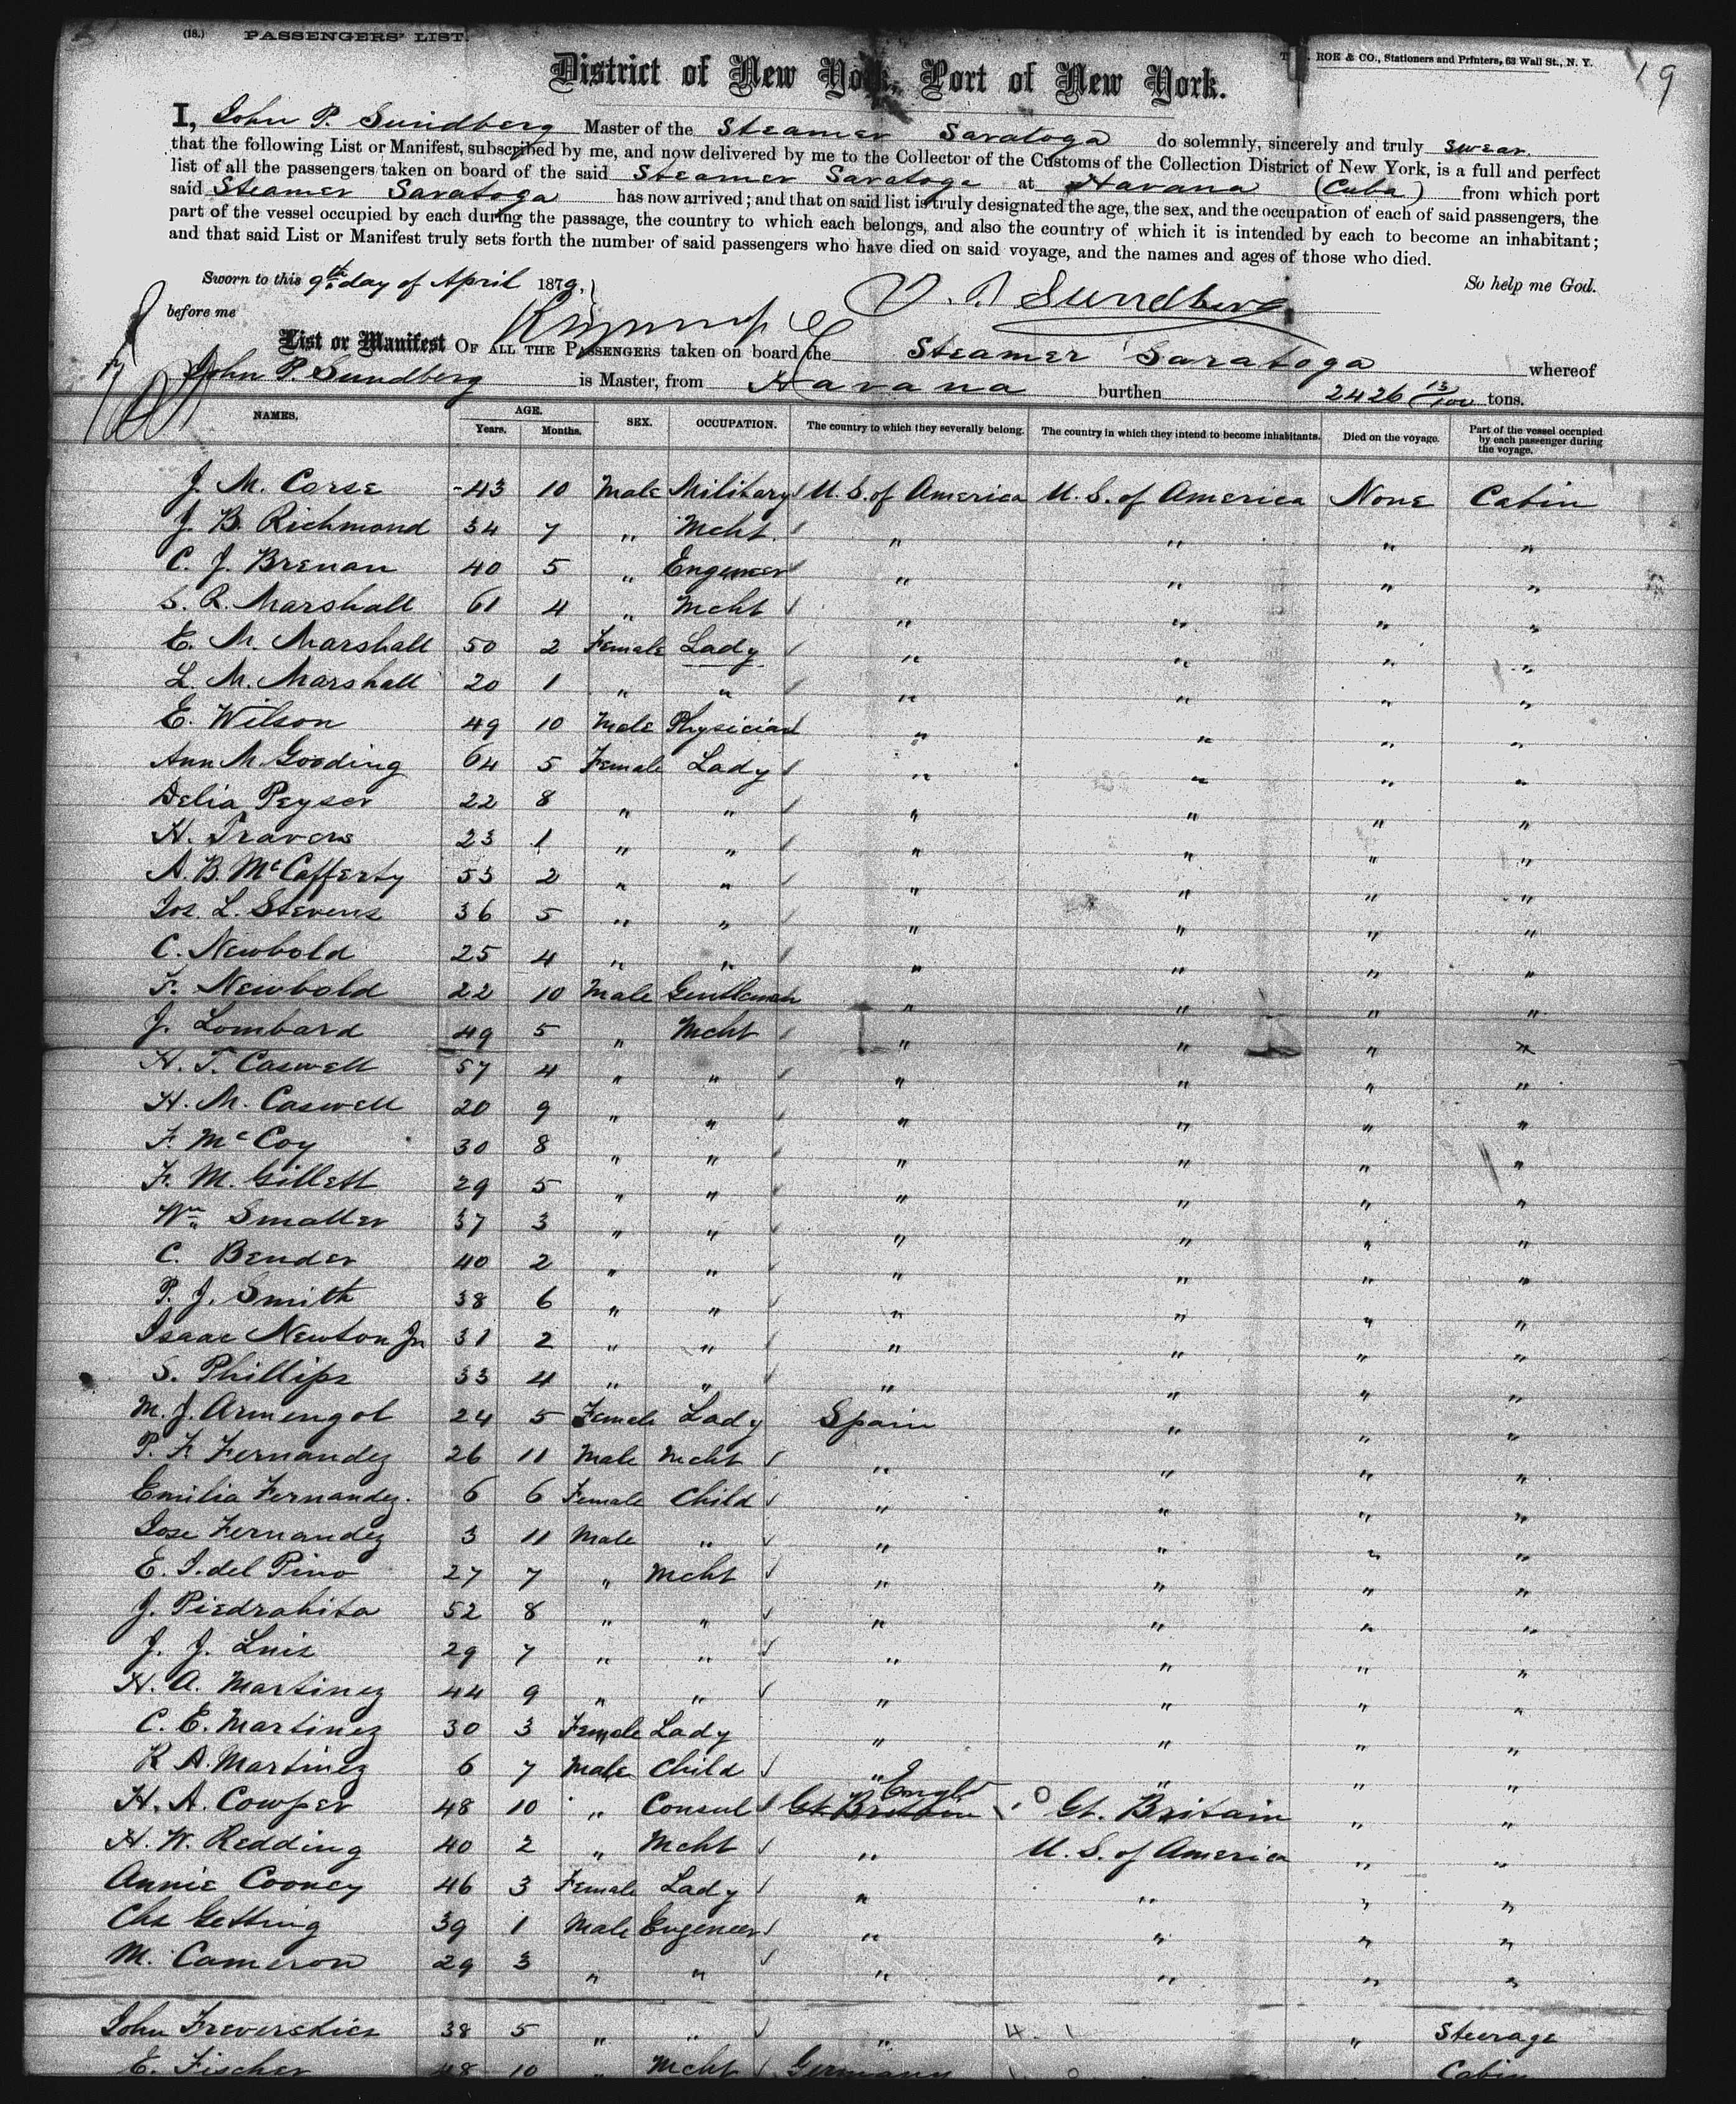 (18.) PASSENGERS' LIST.
ROE & CO., Stationers and Printers, 63 Wall St., N. Y.
19
District of New York, Port of New York.
I, John P. Sundberg Master of the Steamer Saratoga do solemnly, sincerely and truly swear
that the following List or Manifest, subscribed by me, and now delivered by me to the Collector of the Customs of the Collection District of New York, is a full and perfect
list of all the passengers taken on board of the said Steamer Saratoga at Havana (Cuba) from which port
said Steamer Saratoga has now arrived; and that on said list is truly designated the age, the sex, and the occupation of each of said passengers, the
part of the vessel occupied by each during the passage, the country to which each belongs, and also the country of which it is intended by each to become an inhabitant;
and that said List or Manifest truly sets forth the number of said passengers who have died on said voyage, and the names and ages of those who died.
Sworn to this 9th day of April 1879, So help me God.
before me Sundberg
List or Manifest OF ALL THE PASSENGERS taken on board the Steamer Saratoga whereof
John P. Sundberg is Master, from Havana burthen 2426 13/100 tons.
NAMES. AGE. Years. Months. SEX. OCCUPATION. The country to which they severally belong. The country in which they intend to become inhabitants. Died on the voyage. Part of the vessel occupied by each passenger during the voyage.
J. M. Corse 43 10 Male Military U. S. of America U. S. of America None Cabin
J. B. Richmond 34 7 " Mcht. " " " "
C. J. Brenan 40 5 " Engeneer " " " "
S. R. Marshall 61 4 " Mcht " " " "
E. M. Marshall 50 2 Female Lady " " " "
L. M. Marshall 20 1 " " " " " "
E. Wilson 49 10 Male Physician " " " "
Ann M. Gooding 64 5 Female Lady " " " "
Delia Peyser 22 8 " " " " " "
H. Travers 23 1 " " " " " "
A. B. McCafferty 53 2 " " " " " "
Jos. L. Stevens 36 5 " " " " " "
C. Newbold 25 4 " " " " " "
F. Newbold 22 10 Male Gentleman " " " "
J. Lombard 49 5 " Mcht " " " "
H. T. Caswell 57 4 " " " " " "
H. M. Caswell 20 9 " " " " " "
F. McCoy 30 8 " " " " " "
F. M. Gillett 29 5 " " " " " "
Wm Smaller 37 3 " " " " " "
C. Bender 40 2 " " " " " "
P. J. Smith 38 6 " " " " " "
Isaac Newton Jr 31 2 " " " " " "
S. Phillips 33 4 " " " " " "
M. J. Armengol 24 5 Female Lady Spain " " "
P. F. Fernandez 26 11 Male Mcht " " " "
Emilia Fernandez. 6 6 Female Child " " " "
Jose Fernandez 3 11 Male " " " " "
E. I. del Pino 27 7 " Mcht " " " "
J. Piedrahita 52 8 " " " " " "
J. J. Luis 29 7 " " " " " "
H. A. Martinez 44 9 " " " " " "
C. E. Martinez 30 3 Female Lady " " " "
R. A. Martinez 6 7 Male Child " " " "
H. A. Cowper 48 10 " Consul Gt. Britain Engld Gt. Britain " "
H. W. Redding 40 2 " Mcht " U. S. of America " "
Annie Cooney 46 3 Female Lady " " " "
Chs Getting 39 1 Male Engeneer " " " "
M. Cameron 29 3 " " " " " "
John 38 5 " " " " Steerage
E. Fischer 48 10 " Mcht Germany " " Cabin